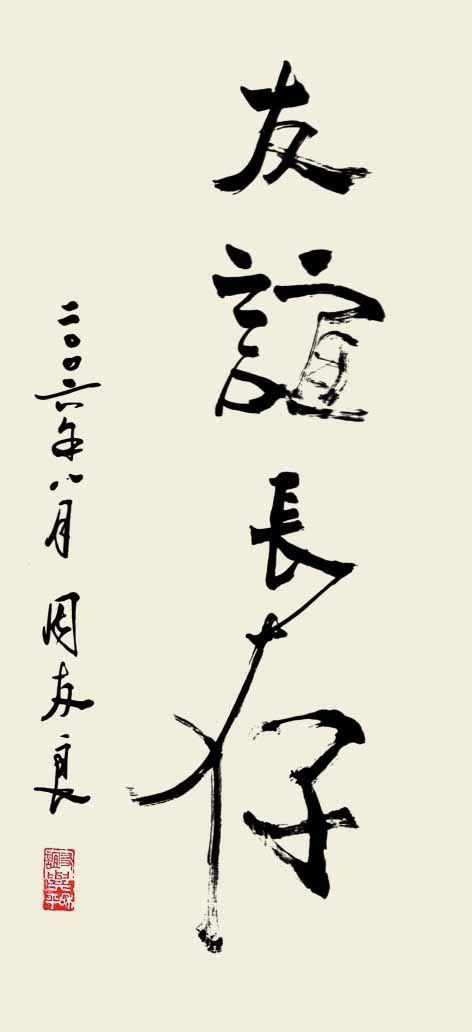 友誼長存
二〇〇六年八月 周友良